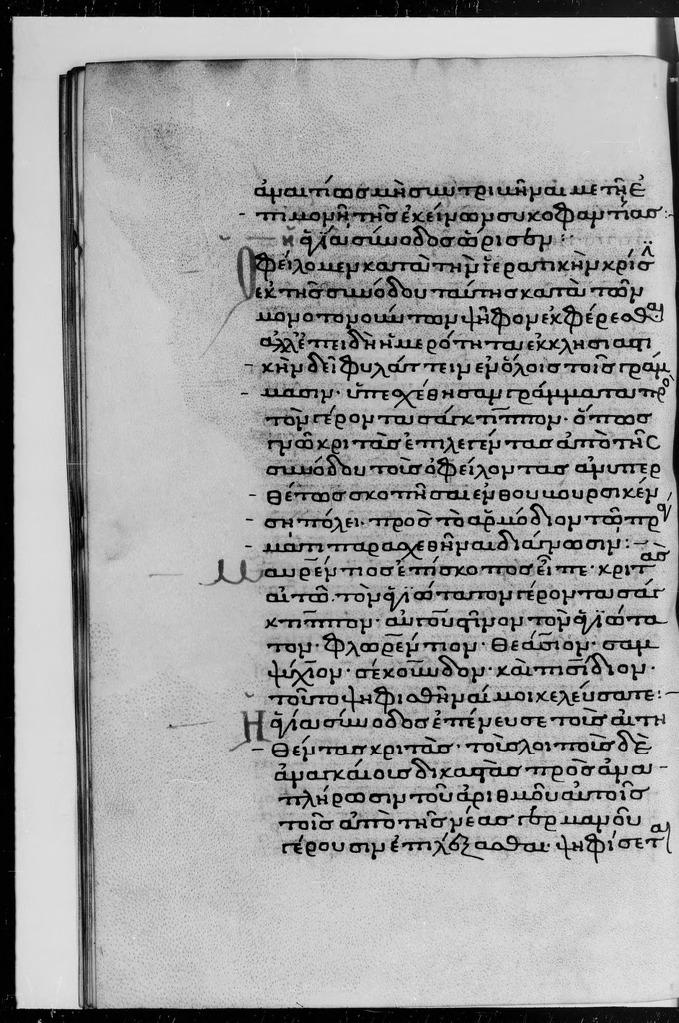 ἀναιτίως μὴ συντριβῆναι μετῆ ἐ
πινομῆ τῆς ἐκείνων συκοφαντίας:
ἡ ἁγία σύνοδος ὥρισεν:
Ὀφείλομεν κατὰ τὴν ἱερατικὴν κρίσ
ἐκ τῆς συνόδου ταύτης κατὰ τῶν
μονοτονούντων ψῆφον ἐκφέρεσθαι
ἀλλ' ἐπειδὴ ἡμερότητα ἐκκλησιαστι
κὴν δεῖ φυλάττειν ἐν ὅλοις τοῖς γράμ
μασιν· ὑπεχέθησαν γράμματα πρὸ
τὸν γέροντα σάγκτιππον· ὅπως
γνῷ κριτὰς ἐπιλεγέντας ἀπὸ τῆς
συνόδου τοὺς ὀφείλοντας ἀνυπερ
θέτως σκοπῆσαι ἐν θουνουρσικέν
ση πόλει· πρὸς τὸ ἁρμόδιον τῷ πρά
γματι παρασχεθῆναι διάγνωσιν:
Μαυρέντιος ἐπίσκοπος εἶπε· κριτὰς
αἰτῶ· τὸν ἁγιώτατον γέροντα σάγ
κτιππον· αὐγουστῖνον τὸν ἁγιώτα
τον· Φλωρέντιον· Θεάσιον· σαμ
ψύχιον· σεκοῦνδον· καὶ πισίδιον·
τοῦτο ψηφισθῆναί μοι κελεύσατε:
Ἡ ἁγία σύνοδος ἐπένευσε τοὺς αἰτη
θέντας κριτάς· τοὺς λοιποὺς δὲ
ἀναγκαίους δικαστὰς πρὸς ἀνα
πλήρωσιν τοῦ ἀριθμοῦ αὐτοῖς
τοῖς ἀπὸ τῆς νέας γερμανοῦ
γέρουσιν ἐπιλέξασθαι ψηφίσεται